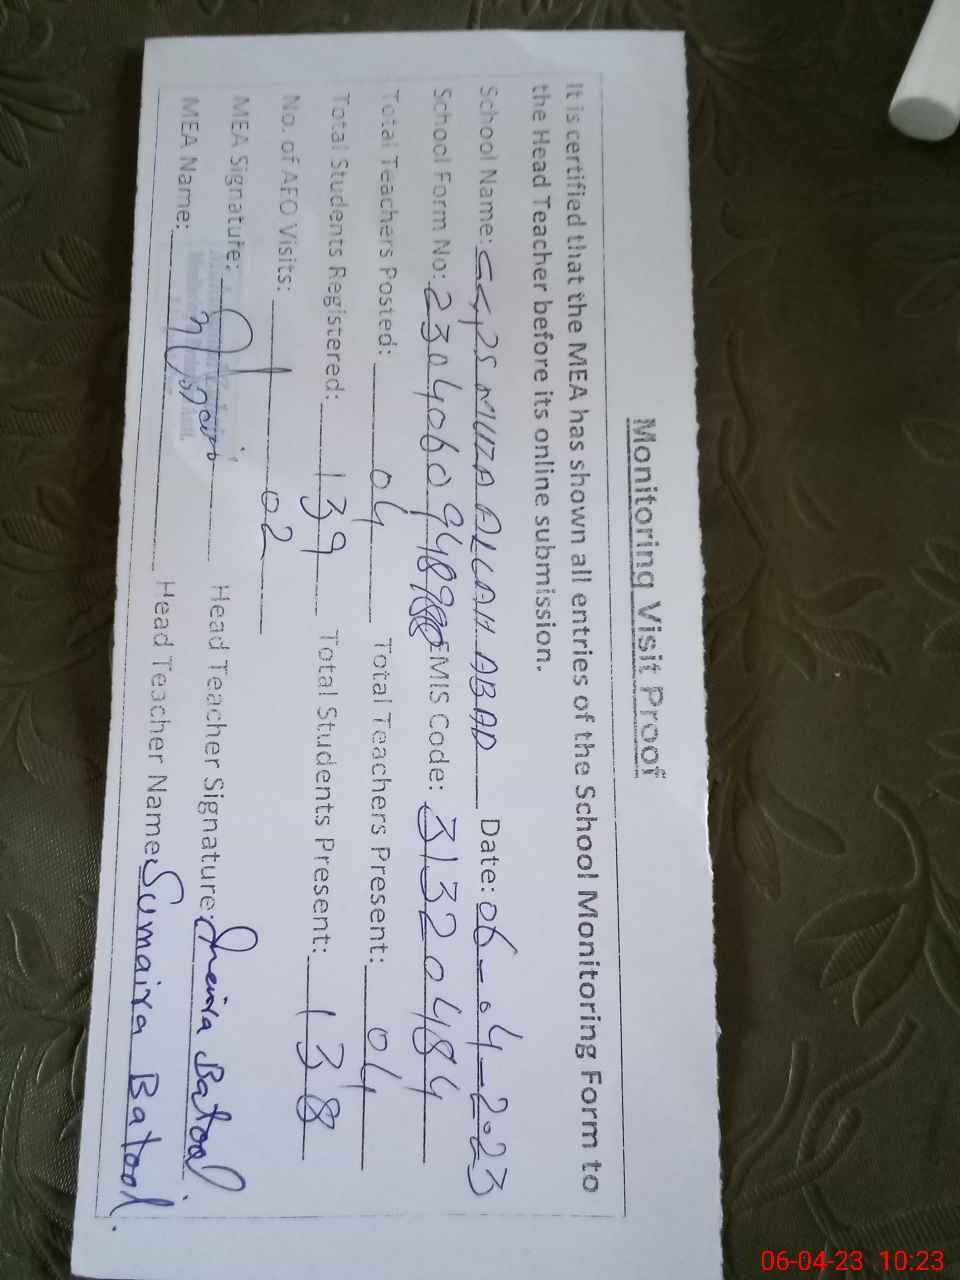 Monitoring Visit Proof
It is certified that the MEA has shown all entries of the School Monitoring Form to
the Head Teacher before its online submission.
School Name: MUZA ALLAH ABAD Date: 06-04-2023
School Form No: EMIS Code: 31320484
Total Teachers Posted: 04 Total Teachers Present: 04
Total Students Registered: 139 Total Students Present: 138
No. of AFO Visits: 02
MEA Signature: Head Teacher Signature: Batool
MEA Name: Head Teacher Name: Sumaira Batool.
06-04-23 10:23